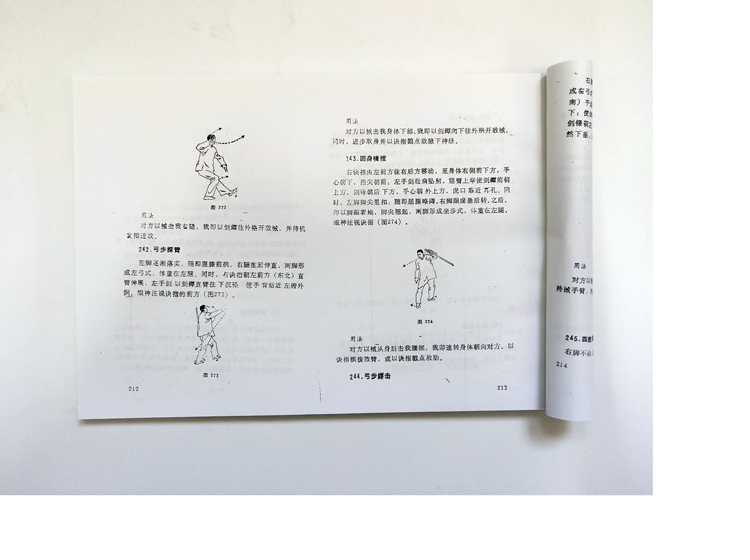 图 272
用法
对方以械击我右腿，我即以剑镡往外格开敌械，并待机
发招进攻。
242.弓步探臂
左脚逐渐落实，随即屈膝前拱，右腿在后伸直，两脚形
成左弓式，体重在左腿，同时，右诀指朝左前方（东北）直
臂伸展；左手剑以剑镡直臂往下沉坠
侧，眼神注视诀指的前方（图273）。
图 273
212
用法
对方以械击我身体下部，我即以剑镡向下往外格开敌械，
同时，进步取身并以诀指戳点敌腋下神经。
243.回身横掖
右诀指由左前方往右后方移动，至身体右侧前下方，手
心朝下，指尖朝前；左手剑松肩坠肘，竖臂上举使剑镡前朝
上方，剑锋朝后下方，手心朝外上方，虎口靠近耳孔，同
时，左脚脚尖里扣；随即屈膝略蹲，右脚跟虚悬后转，之后，
即以脚跟着地，脚尖翘起，两脚形成坐步式，体重在左腿，
眼神注视诀指（图274）。
图 274
用法
对方以械从身后击我腰部，我即速转身体朝向对方，以
诀指横拨敌臂，或以诀指戳点敌肋。
244.弓步镡击
213
成右弓
南）平
下；使
剑锋朝左
然下垂，
用法
对方以
持械手臂；
245.四
右脚不
214